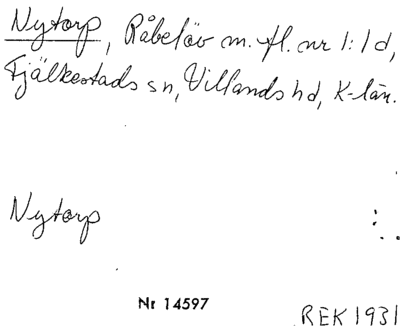 Nytorp, Råbelöv m. fl. nr 1:1 d,
Fjälkestads sn, Villands hd, K-län.
Nytorp
Nr 14597
REK 1931